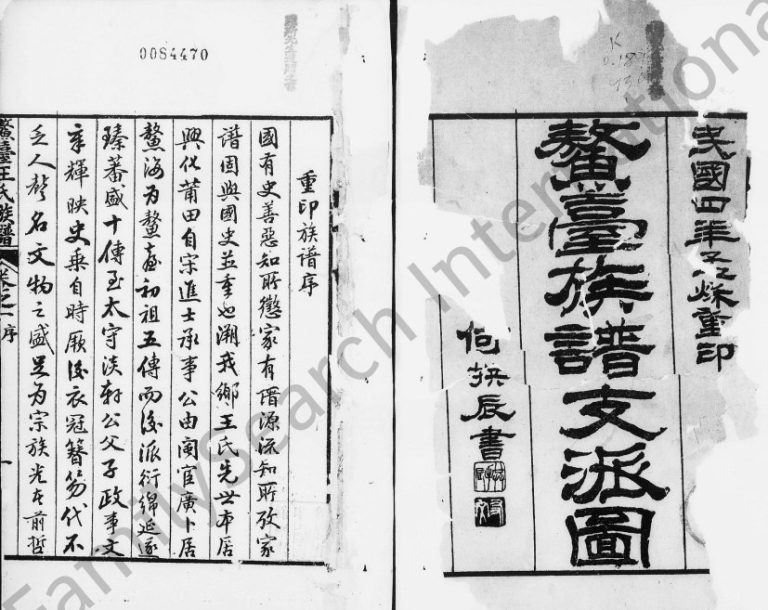 民國四年孟秋重印
鰲臺族譜支派圖
何拱辰書
0084470
重印族譜序
國有史善惡知所懲家有譜源流知所攷家
譜固與國史並重也溯我鄉王氏先世本居
興化莆田自宋進士承事公由閩官廣卜居
鰲海為鰲臺初祖五傳而後派衍綿延逐
臻蕃盛十傳至太守淡軒公父子政事文
章輝映史乘自時厥後衣冠簪笏代不
乏人聲名文物之盛足为宗族光在前哲
鰲臺王氏族譜 卷之一 序 一
FamilySearch International